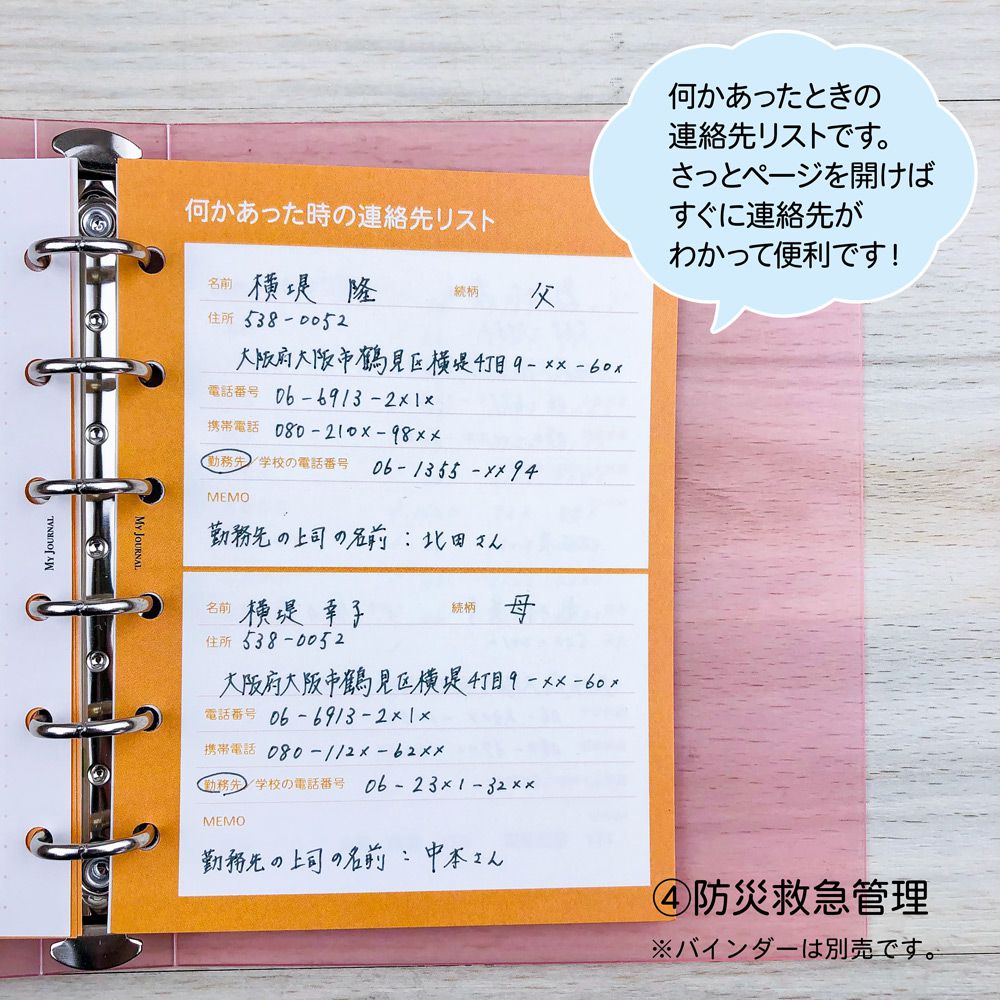 何かあったときの
連絡先リストです。
さっとページを開けば
すぐに連絡先が
わかって便利です！
何かあった時の連絡先リスト
名前 横堤 隆 続柄 父
住所 538-0052
大阪府大阪市鶴見区横堤4丁目9-××-60×
電話番号 06-6913-2×1×
携帯電話 080-210×-98××
勤務先/学校の電話番号 06-1355-××94
MEMO
勤務先の上司の名前：北田さん
名前 横堤 幸子 続柄 母
住所 538-0052
大阪府大阪市鶴見区横堤4丁目9-××-60×
電話番号 06-6913-2×1×
携帯電話 080-112×-62××
勤務先/学校の電話番号 06-23×1-32××
MEMO
勤務先の上司の名前：中本さん
MY JOURNAL
MY JOURNAL
④防災救急管理
※バインダーは別売です。